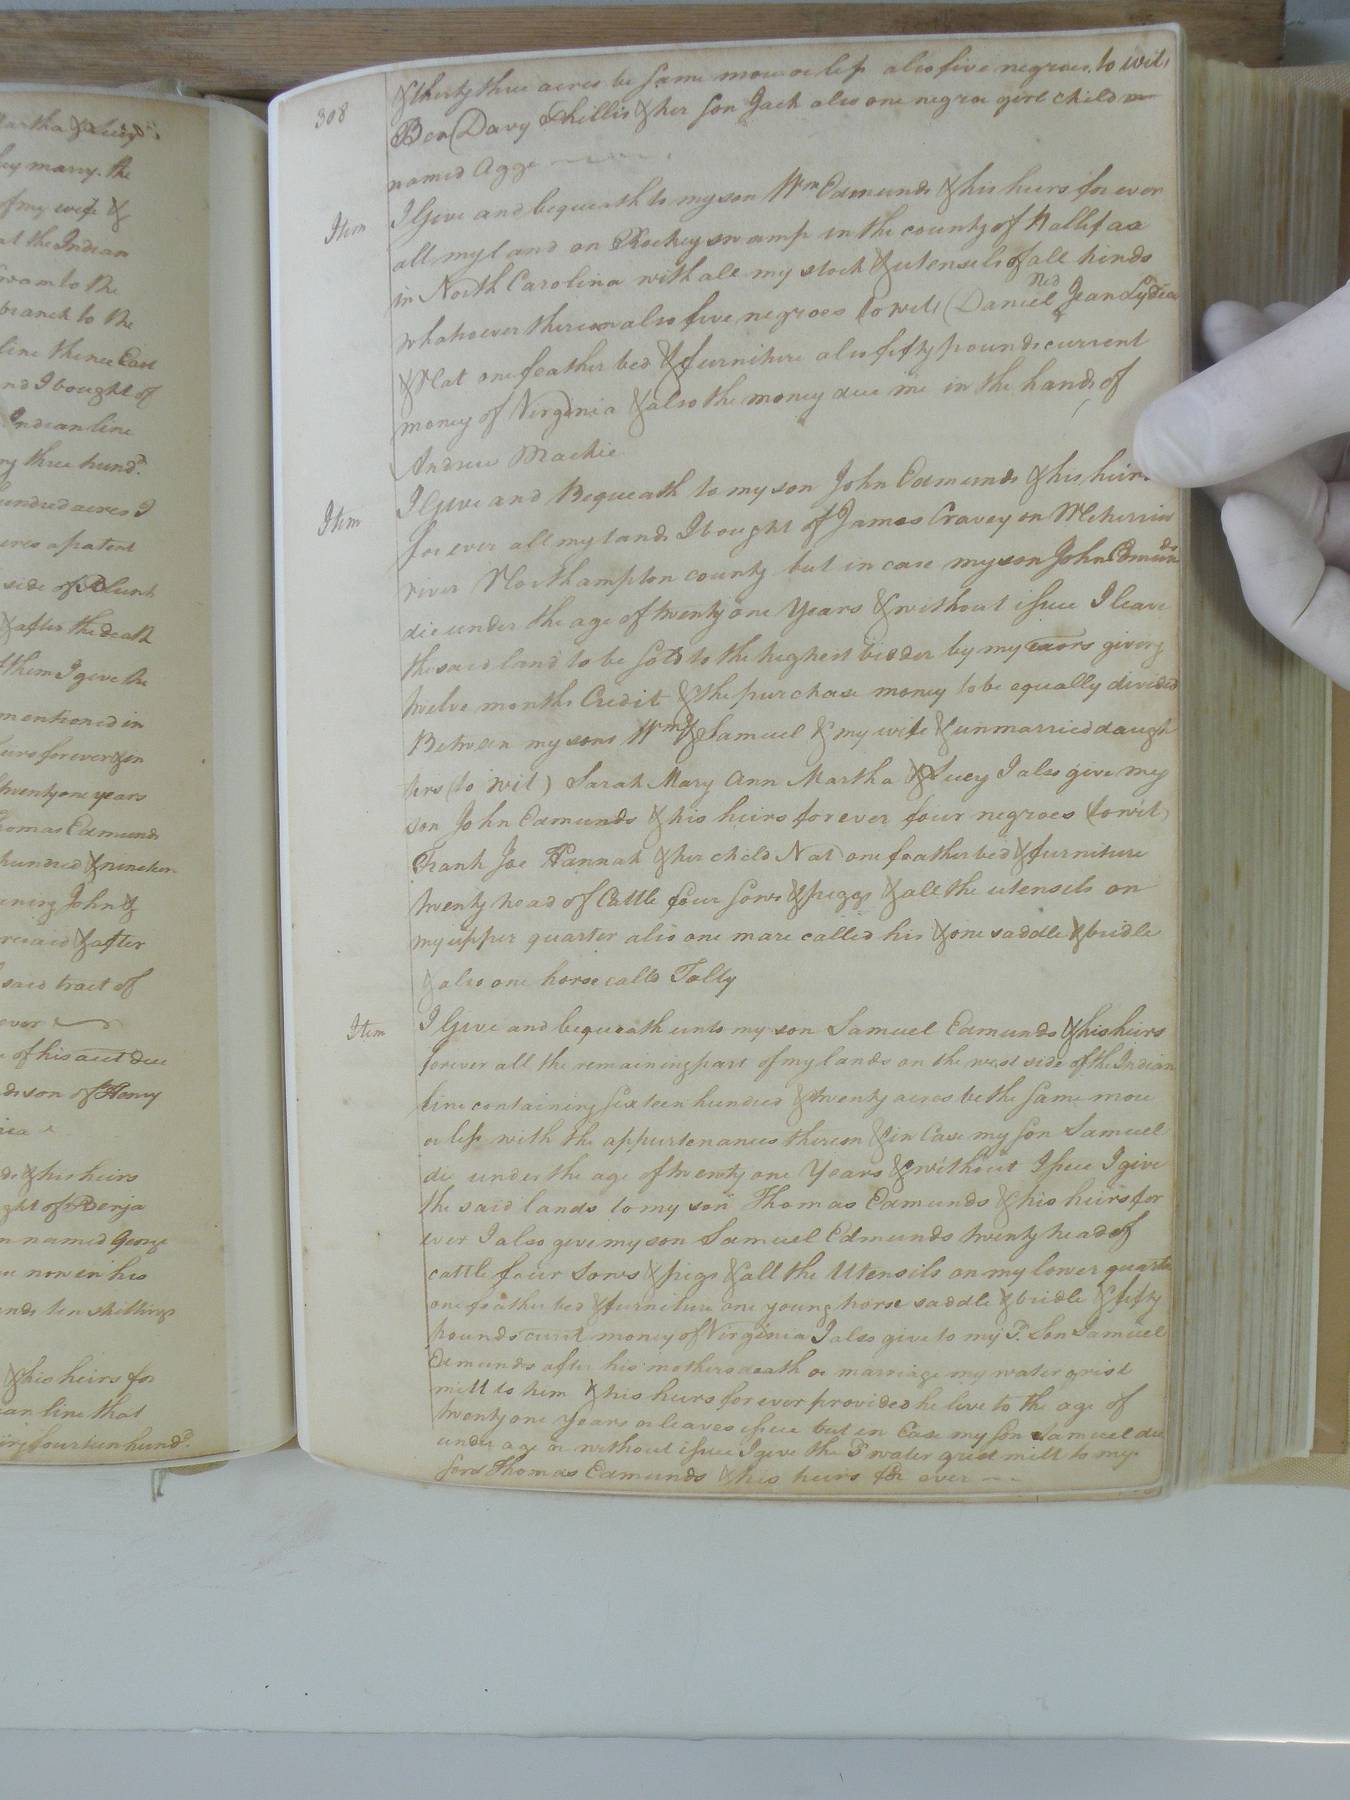 artha & Lucy
hey marry. the
of my wife &
at the Indian
swam to the
branch to the
line thence East
nd I bought of
Indian line
ry three hund.d
hundred acres I
eres a patent
side of Blunt
& after the death
them I give the
mentioned in
heirs forever & on
twenty one years
homas Edmunds
hundred & nineteen
aining John &
resaid & after
said tract of
ever
of his acct due
dson of Henry
de & his heirs
ght of Benja
n named George
now in his
nds ten shillings
& his heirs for
an line that
ing fourteen hund.d
308
& thirty three acres be same more or less also five negroes. to wit,
Ben Davy Phillis & her son Jack also one negroe girl child
named Agge
Item
I Give and bequeath to my son Wm Edmunds & his heirs for ever
all my land on Rockey swamp in the county of Hallifax
in North Carolina with all my stock & utensils of all kinds
Ned
whatsoever thereon also five negroes (to wit) Daniel Jean Lydia
& Nat one feather bed & furniture also fifty pounds current
money of Virginia & also the money due me in the hands of
Andrew Mackie
Item
I Give and Bequeath to my son John Edmunds & his heirs
for ever all my lands I bought of James Cravey on Meherrin
river Northampton county but in case my son John Edmunds
die under the age of twenty one Years & without issue I leave
the said land to be sold to the highest bidder by my exors giving
twelve months Credit & the purchase money to be equally divided
Between my sons Wm & Samuel & my wife & unmarried daugh
ters (to wit) Sarah Mary Ann Martha & Lucy I also give my
son John Edmunds & his heirs for ever four negroes (to wit)
Frank Joe Hannah & her child Nat one feather bed & furniture
twenty head of Cattle four sows & piggs & all the utensils on
my upper quarter also one mare called his & one saddle & bridle
& also one horse calld Tally
Item
I Give and bequeath unto my son Samuel Edmunds & his heirs
forever all the remaining part of my lands on the west side of the Indian
line containing sixteen hundred & twenty acres be the same more
or less with the appurtenances thereon & in Case my son Samuel
die under the age of twenty one Years & without Issue I give
the said lands to my son Thomas Edmunds & his heirs for
ever I also give my son Samuel Edmunds twenty head of
cattle four Sows & pigs & all the Utensils on my lower quarter
one feather bed & furniture one young horse saddle & bridle & fifty
pounds curr.t money of Virginia I also give to my s.d Son Samuel
Edmunds after his mothers death or marriage my water grist
mill to him & his heirs for ever provided he live to the age of
twenty one Years or leaves issue but in Case my son Samuel die
under age or without issue I give the s.d water grist mill to my
son Thomas Edmunds & his heirs for ever